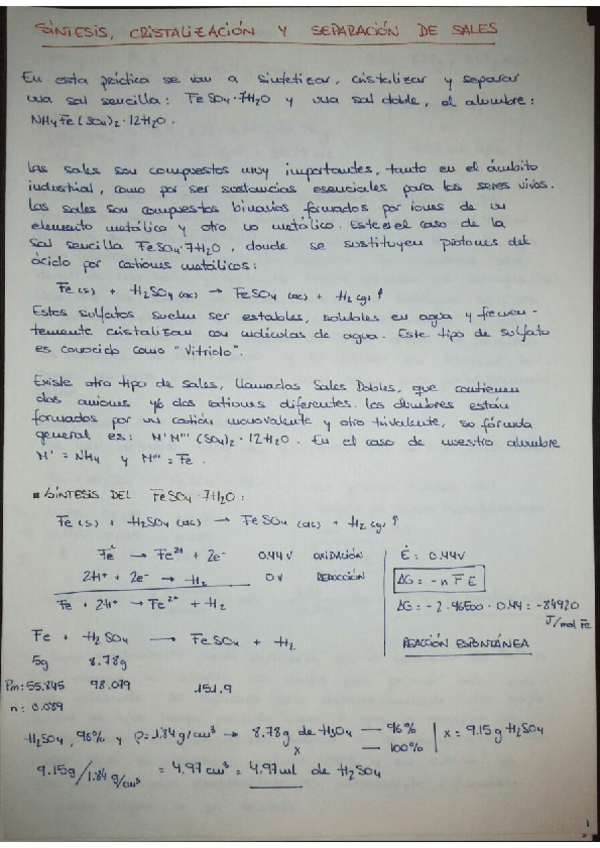 SÍNTESIS, CRISTALIZACIÓN Y SEPARACIÓN DE SALES
En esta práctica se van a sintetizar, cristalizar y separar
una sal sencilla: FeSO4·7H2O y una sal doble, el alumbre:
NH4Fe(SO4)2·12H2O.
Las sales son compuestos muy importantes, tanto en el ámbito
industrial, como por ser sustancias esenciales para los seres vivos.
Las sales son compuestos binarios formados por iones de un
elemento metálico y otro no metálico. Este es el caso de la
sal sencilla FeSO4·7H2O, donde se sustituyen protones del
ácido por cationes metálicos:
Fe(s) + H2SO4(ac) → FeSO4(ac) + H2(g)↑
Estos sulfatos suelen ser estables, solubles en agua y frecuen-
temente cristalizan con moléculas de agua. Este tipo de sulfato
es conocido como "Vitriolo".
Existe otro tipo de sales, llamadas Sales Dobles, que contienen
dos aniones y/o dos cationes diferentes. Los alumbres están
formados por un catión monovalente y otro trivalente, su fórmula
general es: M'M'''(SO4)2·12H2O. En el caso de nuestro alumbre
M' = NH4 y M''' = Fe.
■ SÍNTESIS DEL FeSO4·7H2O:
Fe(s) + H2SO4(ac) → FeSO4(ac) + H2(g)↑
Fe → Fe2+ + 2e- 0.44V OXIDACIÓN E: 0.44V
2H+ + 2e- → H2 0V REDUCCIÓN ΔG = -nFE
Fe + 2H+ → Fe2+ + H2 ΔG = -2·96500·0.44 = -84920 J/mol Fe
Fe + H2SO4 → FeSO4 + H2 REACCIÓN ESPONTÁNEA
5g 8.78g
Pm: 55.845 98.079 151.9
n: 0.089
H2SO4, 96% y ρ=1.84g/cm3 → 8.78g de H2SO4 — 96% | x = 9.15g H2SO4
x — 100%
9.15g/1.84 g/cm3 = 4.97cm3 = 4.97ml de H2SO4
1